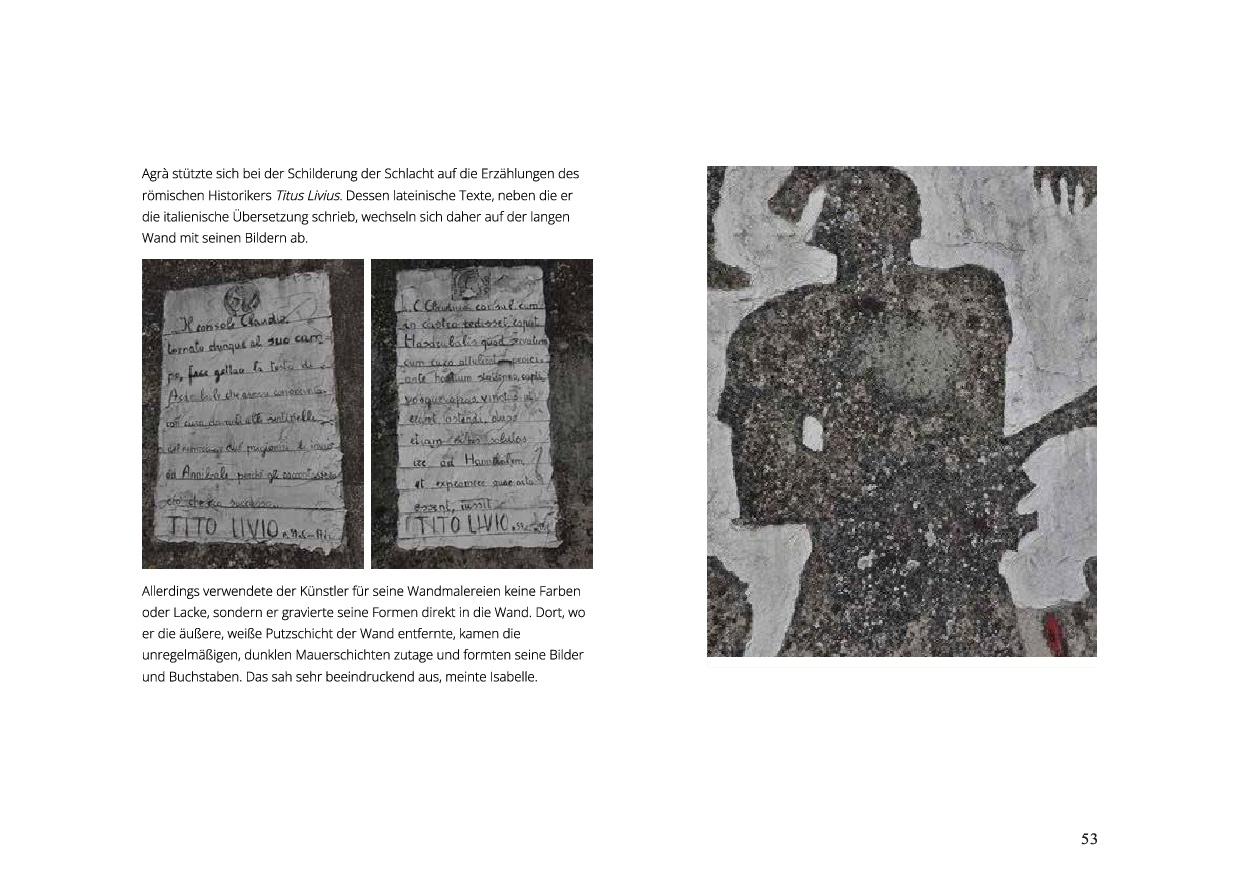 Agrà stützte sich bei der Schilderung der Schlacht auf die Erzählungen des
römischen Historikers Titus Livius. Dessen lateinische Texte, neben die er
die italienische Übersetzung schrieb, wechseln sich daher auf der langen
Wand mit seinen Bildern ab.
Il console Claudio
tornato dunque al suo cam-
po, fece gettare la testa di
con cura davanti alle sentinelle
ad Annibale perché gli
ciò che era successo.
TITO LIVIO
C. Claudius consul cum
in castra redisset caput
Hasdrubalis quod servatum
cum cura
ante hostium
ostendi, duos
etiam
ire ad Hannibalem
et expromere quae acta
essent, iussit
TITO LIVIO
Allerdings verwendete der Künstler für seine Wandmalereien keine Farben
oder Lacke, sondern er gravierte seine Formen direkt in die Wand. Dort, wo
er die äußere, weiße Putzschicht der Wand entfernte, kamen die
unregelmäßigen, dunklen Mauerschichten zutage und formten seine Bilder
und Buchstaben. Das sah sehr beeindruckend aus, meinte Isabelle.
53